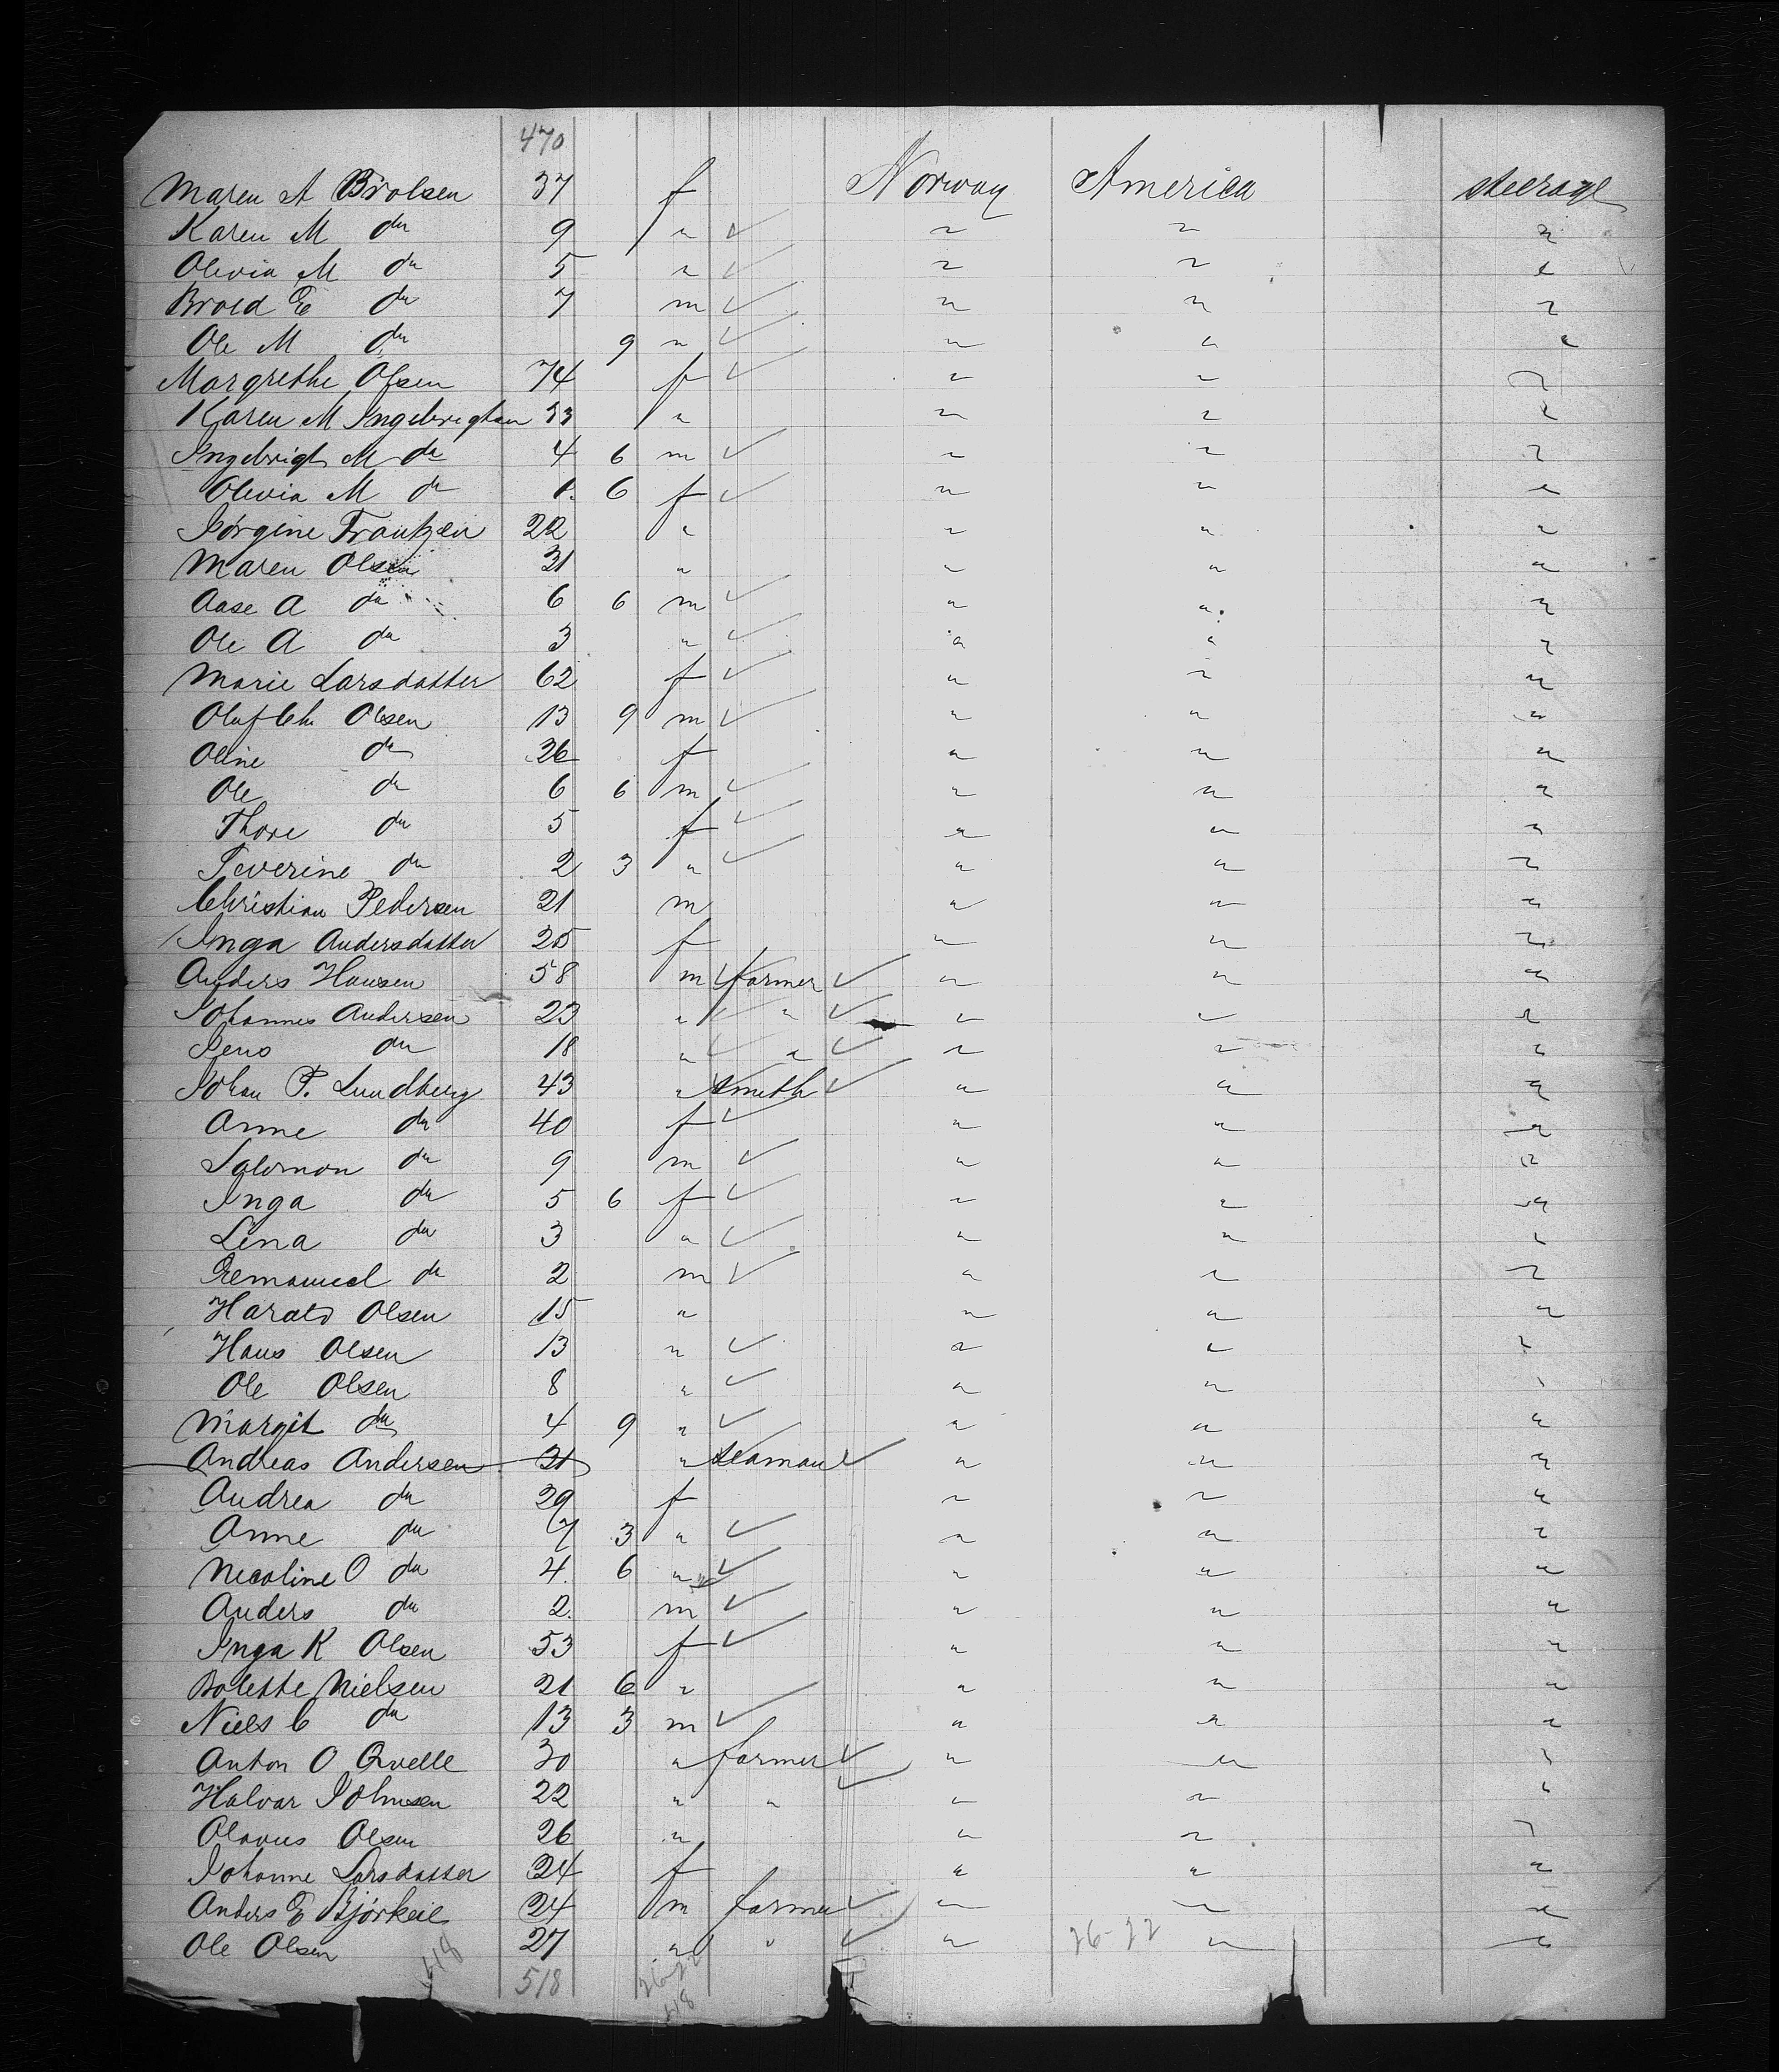 470
Maren A Brolsen 37 f Norway America steerage
Karen M do 9 " " " "
Olevia M do 5 " " " "
Broed E do 7 m " " "
Ole M do 9 " " " "
Margrethe Olsen 74 f " " "
Karen M Ingebrigtsen 33 " " " "
Ingebrigt M do 4 6 m " " "
Olevia M do 1. 6 f " " "
Jörgine Frantzen 22 " " " "
Maren Olsen 31 " " " "
Aase A do 6 6 m " " "
Ole A do 3 " " " "
Marie Larsdatter 62 f " " "
Oluf Chr Olsen 13 9 m " " "
Oline do 26 f " " "
Ole do 6 6 m " " "
Thore do 5 f " " "
Severine do 2 3 " " " "
Christian Pedersen 21 m " " "
Inga Andersdatter 25 f " " "
Anders Hansen 58 m farmer " " "
Johannes Andersen 23 " " " " "
Jens do 18 " " " " "
Johan P. Lundberg 43 " smith " " "
Anne do 40 f " " "
Salomon do 9 m " " "
Inga do 5 6 f " " "
Lina do 3 " " " "
do 2 m " " "
Harald Olsen 15 " " " "
Hans Olsen 13 " " " "
Ole Olsen 8 " " " "
Margit do 4 9 " " " "
Andreas Andersen 31 " seaman " " "
Andrea do 29 f " " "
Anne do 7 3 " " " "
Nicoline O do 4. 6 " " " "
Anders do 2. m " " "
Inga K Olsen 53 f " " "
Bolette Nielsen 21 6 " " " "
Niels C do 13 3 m " " "
Anton O Qvelle 30 " farmer " " "
Halvar Johnsen 22 " " " " "
Olavus Olsen 26 " " " "
Johanne Larsdatter 24 f " " "
Anders E Björkeie 24 m farmer " " "
Ole Olsen 27 " " " 26-22 " "
418 518 26-22
418